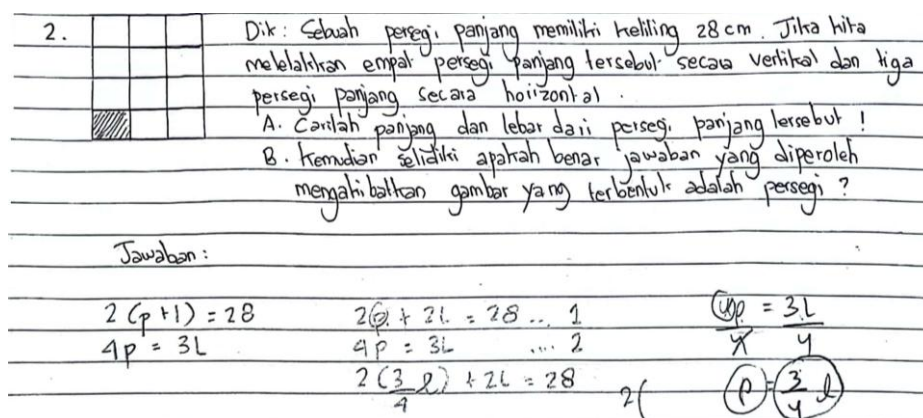 2.
Dik : Sebuah persegi panjang memiliki keliling 28 cm. Jika kita
meletakkan empat persegi panjang tersebut secara vertikal dan tiga
persegi panjang secara horizontal.
A. Carilah panjang dan lebar dari persegi panjang tersebut !
B. Kemudian selidiki apakah benar jawaban yang diperoleh
mengakibatkan gambar yang terbentuk adalah persegi ?
Jawaban :
2 (p + l) = 28
4p = 3L
2p + 2L = 28 ... 1
4p = 3L .... 2
2 (3/4 l) + 2L = 28
2(
4p/4 = 3L/4
p = 3/4 l